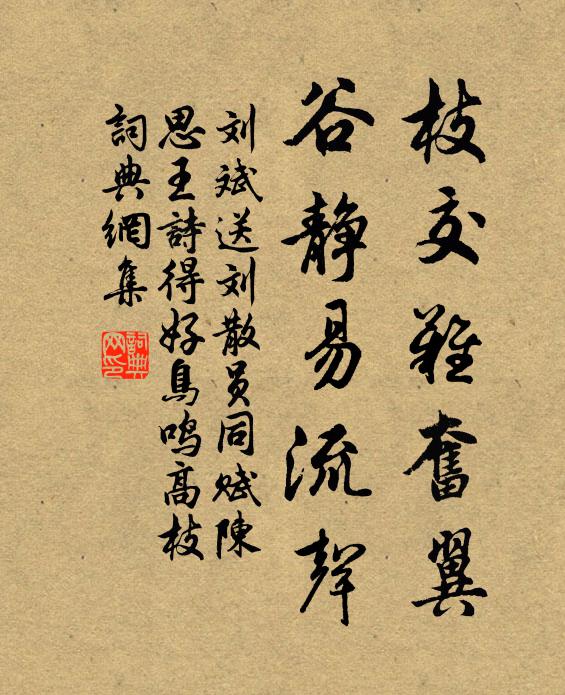 枝交难奮翼
谷静易流聲
刘斌送刘散员同赋陳
思王詩得好鳥鸣高枝
詞典網集
詞典网印